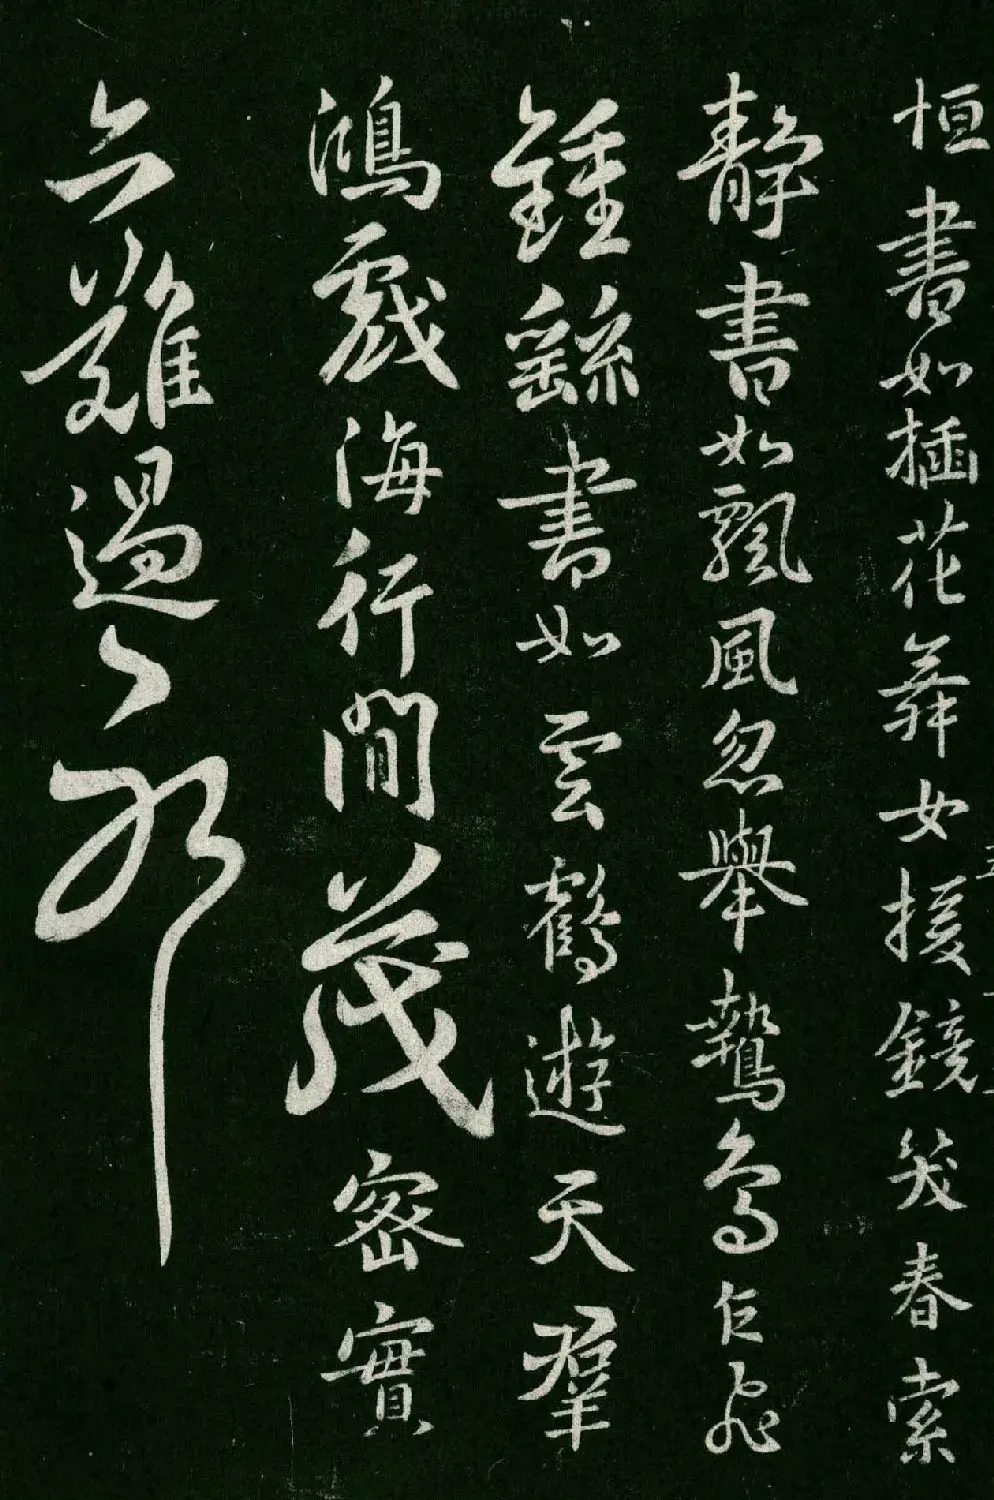 恒書如插花舞女援鏡笑春索
靜書如飄風忽舉鷙鳥乍飛
鍾繇書如雲鶴遊天群
鴻戲海行間茂密實
亦難過耶